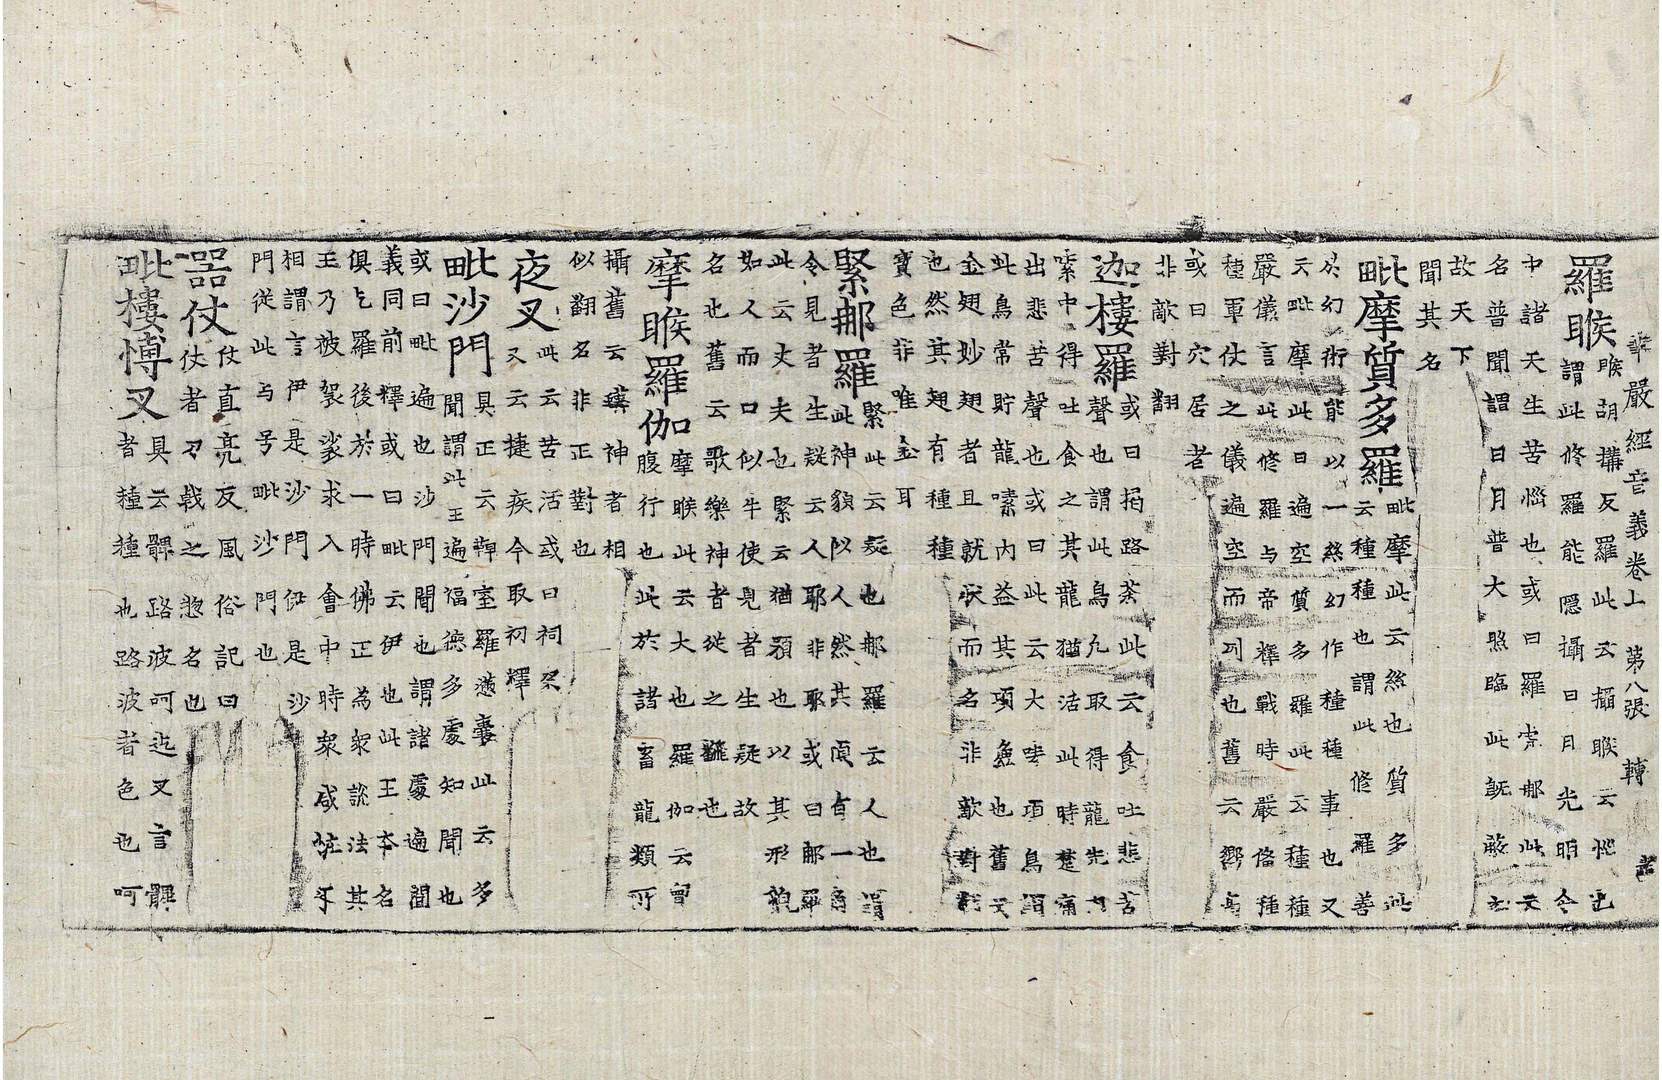 華嚴經音義卷上 第八張 轉
羅睺 睺胡搆反羅此云攝睺云
謂此修羅能隱攝日月光明令
中諸天生苦惱也或曰羅
名普聞謂日月普大照臨此
故天下
聞其名
毗摩質多羅 毗摩此云絲也質多
云種種也謂此修羅善
於幻術能以一絲幻作種種事也又
云毗摩此曰遍空質多羅此云種種
嚴儀言此修羅与帝釋戰時嚴俻種
種軍仗之儀遍空而列也舊云
或曰穴居者
非敵對翻
迦樓羅 或曰揭路荼此云食吐悲苦
聲也謂此鳥凡取得龍先
嗉中得吐食之其龍猶活此時楚痛
出悲苦聲也或曰此云大嗉項鳥謂
此鳥常貯龍嗉內益其項麁也舊云
金翅妙翅者且就狀而名非敵對
也然其翅有種種
寶色非唯金耳
緊那羅 緊此云疑也那羅云人也謂
此神貌似人然其頂有一角
令見者生疑云人耶非耶或曰那羅
此云丈夫也緊云猶預也以其形貌
如人而口似牛使見者生疑故
名也舊云歌樂神者從之
摩睺羅伽 摩睺此云大也羅伽云胷
腹行也此於諸畜龍類所
攝舊云蟒神者相
似翻名非正對也
夜叉 此云苦活或曰祠祭
又云捷疾今取初釋
毗沙門 具正云鞞室羅懣囊此云多
聞謂此王遍福德多處知聞也
或曰毗遍也沙門聞也謂諸處遍聞
義同前釋或曰毗云伊也此王本名
俱乞羅後於一時佛正為眾說法其
王乃被袈裟求入會中時眾咸恠
相謂言伊是沙門伊是沙
門從此与号毗沙門也
噐仗 仗直亮反風俗記曰
仗者刀戟之惣名也
毗樓愽叉 具云髀路波呵迄叉言髀
者種種也路波者色也呵